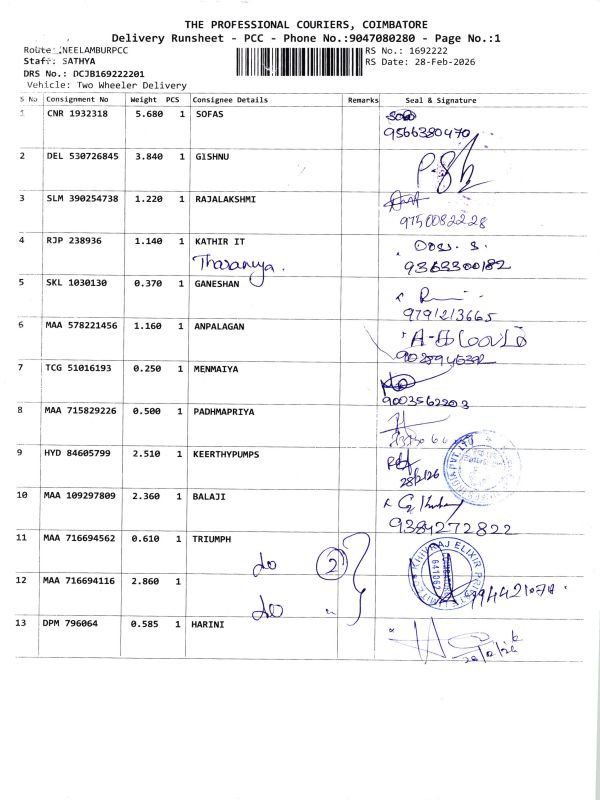 THE PROFESSIONAL COURIERS, COIMBATORE
Delivery Runsheet - PCC - Phone No.:9047080280 - Page No.:1
Route: NEELAMBURPCC
RS No.: 1692222
Staff: SATHYA
RS Date: 28-Feb-2026
DRS No.: DCJB169222201
Vehicle: Two Wheeler Delivery
S No Consignment No Weight PCS Consignee Details Remarks Seal & Signature
1 CNR 1932318 5.680 1 SOFAS
9566380470
2 DEL 530726845 3.840 1 GISHNU
3 SLM 390254738 1.220 1 RAJALAKSHMI
9750082228
4 RJP 238936 1.140 1 KATHIR IT
Tharaniya.
9363300182
5 SKL 1030130 0.370 1 GANESHAN
9791213665
6 MAA 578221456 1.160 1 ANPALAGAN
7 TCG 51016193 0.250 1 MENMAIYA
9003562203
8 MAA 715829226 0.500 1 PADHMAPRIYA
9 HYD 84605799 2.510 1 KEERTHYPUMPS
28/2/26
10 MAA 109297809 2.360 1 BALAJI
9384272822
11 MAA 716694562 0.610 1 TRIUMPH
2
KHIVRAJ ELIXIR
641062
12 MAA 716694116 2.860 1
13 DPM 796064 0.585 1 HARINI